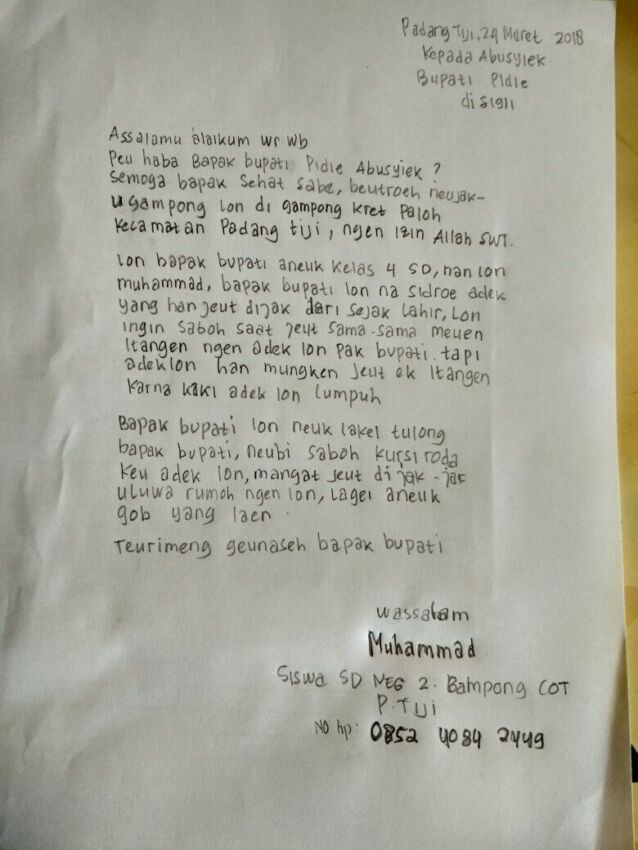 Padang Tiji, 24 Maret 2018
Kepada Abusyiek
Bupati Pidie
di Sigli
Assalamu'alaikum Wr Wb
Peu haba Bapak bupati Pidie Abusyiek ?
Semoga bapak Sehat Sabe, beutroeh neujak-
u gampong lon di gampong kret Paloh
Kecamatan Padang tiji, ngen izin Allah SWT.
Lon bapak bupati aneuk Kelas 4 SD, nan lon
muhammad, bapak bupati lon na sidroe adek
yang han jeut dijak dari sejak lahir, Lon
ingin Saboh Saat jeut sama-sama meuen
Itangen ngen adek lon pak bupati. tapi
adek lon han mungken jeut ek Itangen
Karna Kaki adek lon lumpuh
Bapak bupati lon neuk lakei tulong
bapak bupati, neubi saboh kursi roda
Keu adek lon, mangat jeut dijak-jak
uluwa rumoh ngen lon, Lagei aneuk
gob yang laen.
Teurimeng geunaseh bapak bupati
Wassalam
Muhammad
Siswa SD NEG 2. Bampong COT
P. Tiji
No hp: 0852 4084 2449